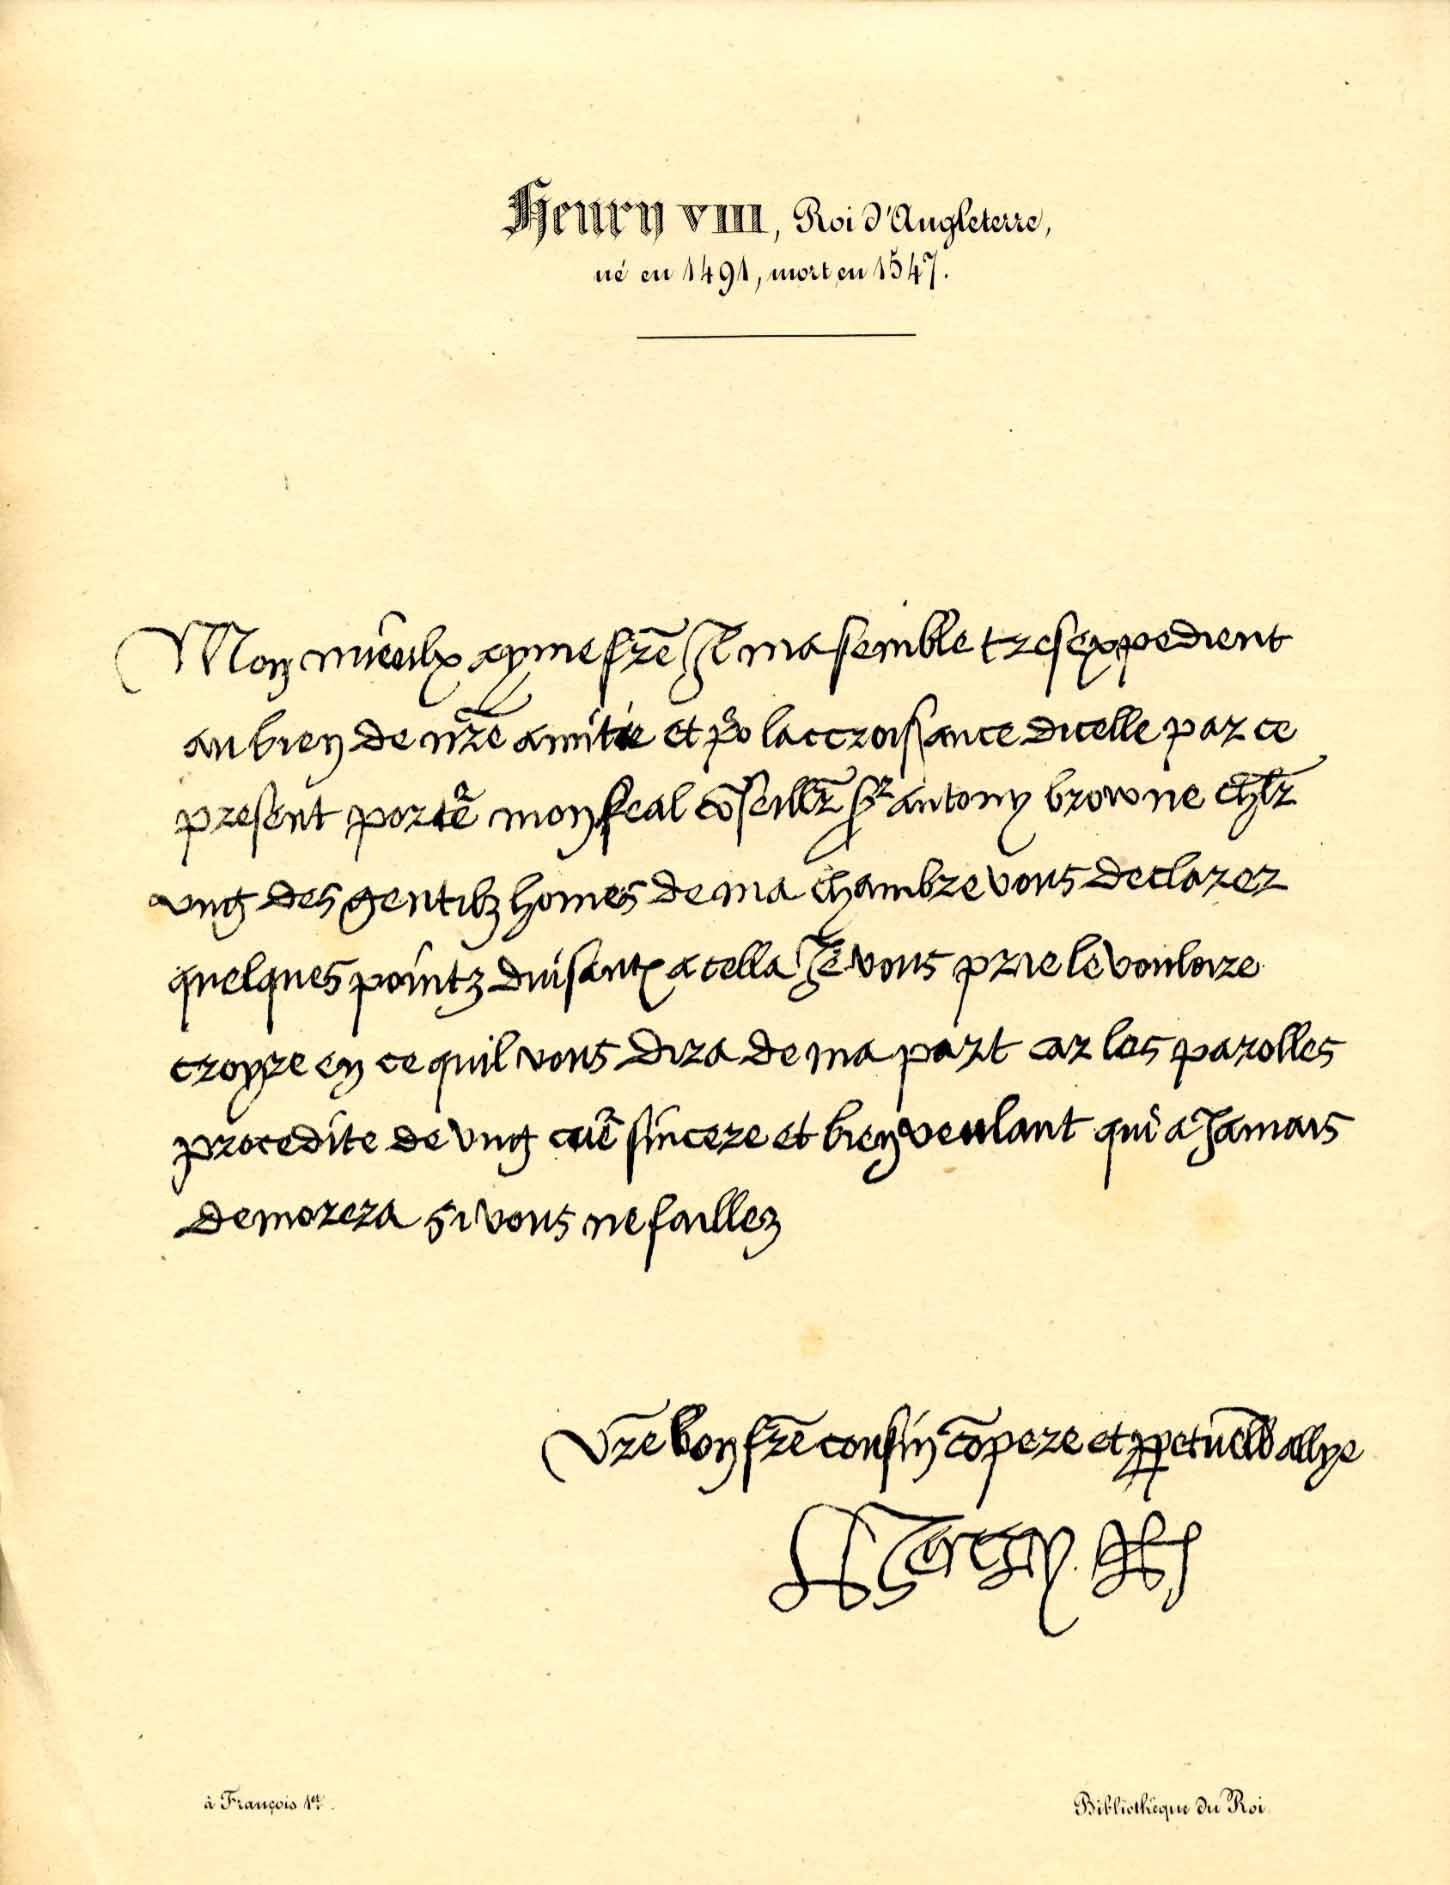 Henry VIII, Roi d'Angleterre,
né en 1491, mort en 1547.
Mon mieulx ayme frē Il ma semble tresexpedient
au bien de nrē amitie et po laccroissance dicelle par ce
present portē mon feal cōseillr̄ sr antony browne chlr̄
ung des gentilz homes de ma chambre vous declarer
quelques pointz duisantz a cella Je vous prie le vouloire
croyre en ce quil vous dira de ma part car les parolles
procedite de ung cuē sincere et bien veulant qui a Jamais
demorera si vous ne faillez
Vrē bon frē cousin cōpere et ppetuell allye
Henry R
à François 1er.
Bibliothèque du Roi.